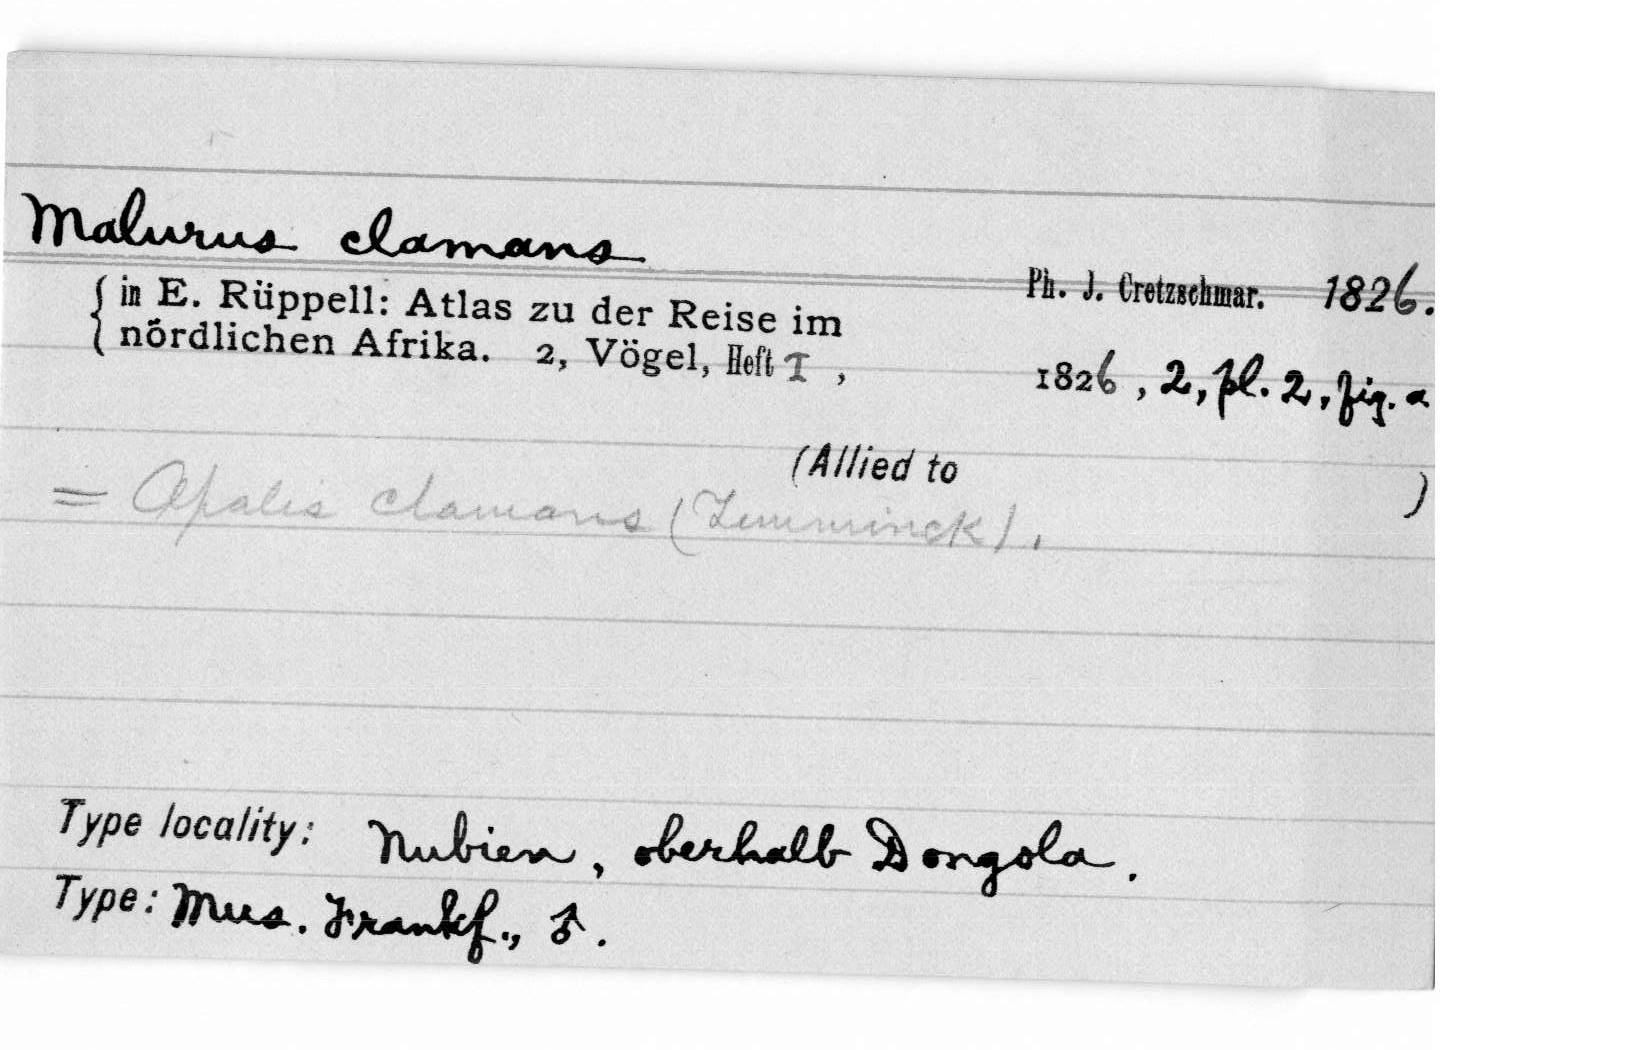 Malurus clamans
Ph. J. Cretzschmar. 1826.
{ in E. Rüppell: Atlas zu der Reise im
nördlichen Afrika. 2, Vögel, Heft I , 1826, 2, pl. 2, fig. a
(Allied to )
= Apalis clamans (Temminck).
Type locality: Nubien, oberhalb Dongola.
Type: Mus. Frankf., ♂.